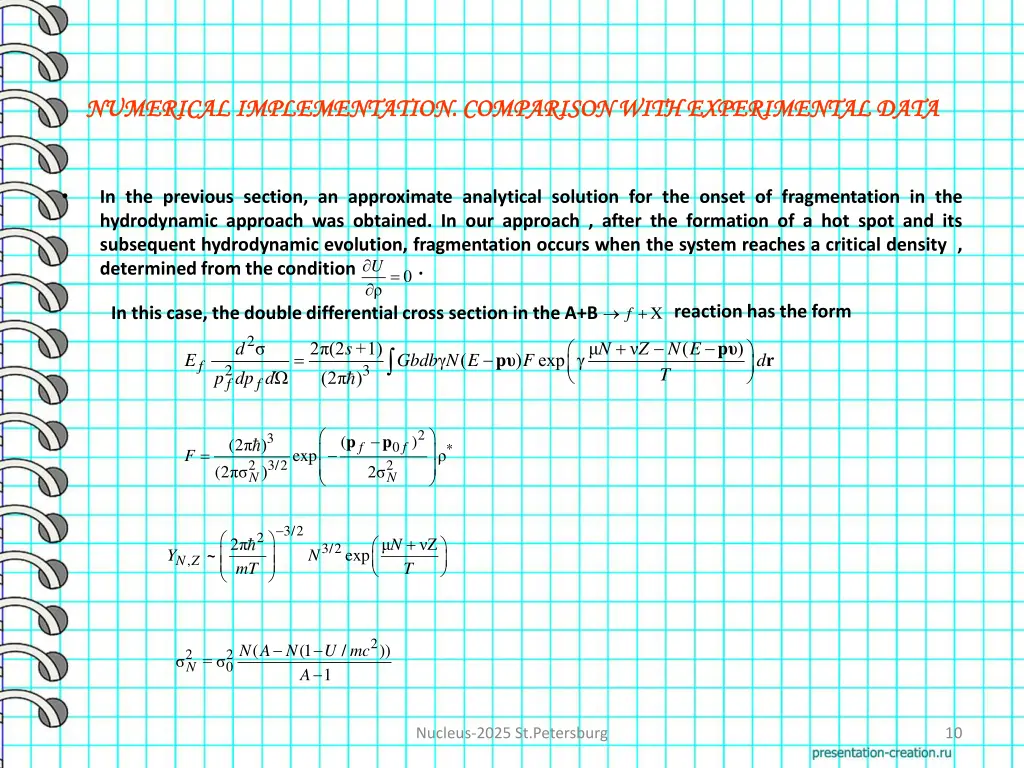 NUMERICAL IMPLEMENTATION. COMPARISON WITH EXPERIMENTAL DATA
• In the previous section, an approximate analytical solution for the onset of fragmentation in the
hydrodynamic approach was obtained. In our approach , after the formation of a hot spot and its
subsequent hydrodynamic evolution, fragmentation occurs when the system reaches a critical density ,
determined from the condition ∂U/∂ρ = 0 .
In this case, the double differential cross section in the A+B → f + X reaction has the form
E_f d²σ/(p_f² dp_f dΩ) = 2π(2s+1)/(2πħ)³ ∫ Gbdbγ N(E − pυ)F exp(γ (μN + νZ − N(E − pυ))/T) dr
F = (2πħ)³/(2πσ_N²)^{3/2} exp(−(p_f − p_{0f})²/(2σ_N²)) ρ*
Y_{N,Z} ~ (2πħ²/mT)^{−3/2} N^{3/2} exp((μN + νZ)/T)
σ_N² = σ_0² N(A − N(1 − U / mc²))/(A − 1)
Nucleus-2025 St.Petersburg 10
presentation-creation.ru